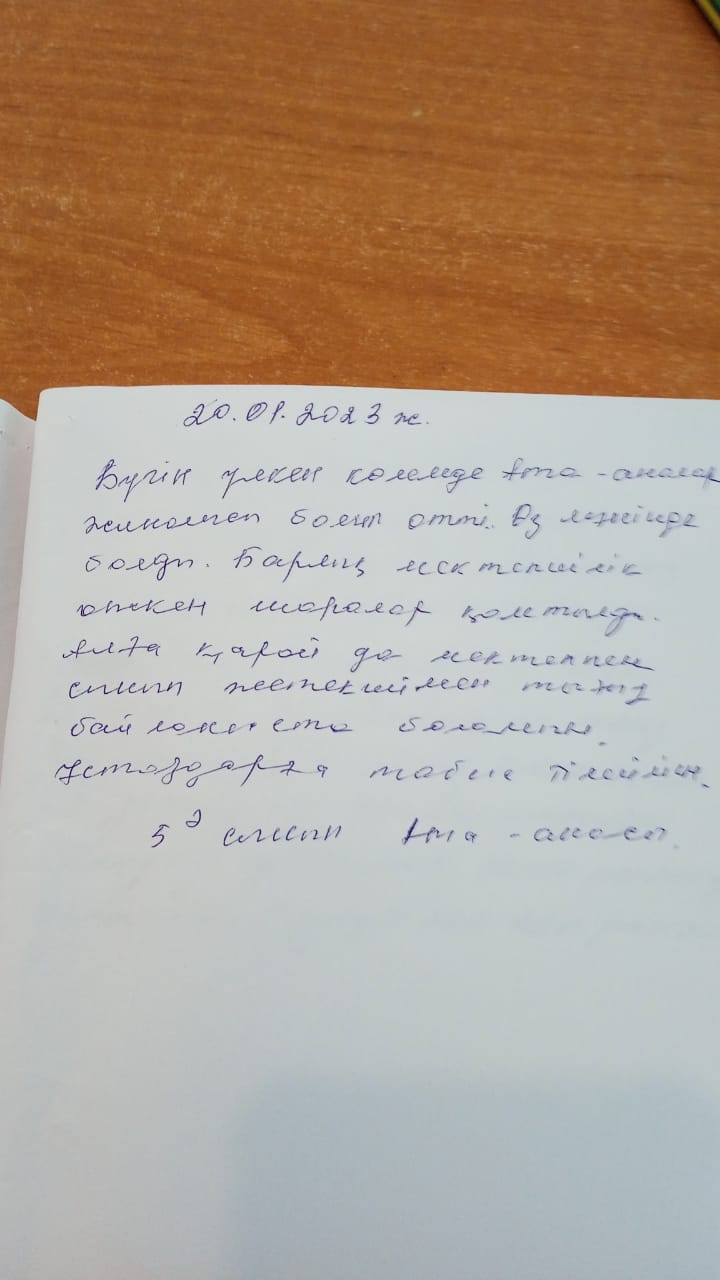 20.01.2023 ж.
Бүгін үлкен көлемде Ата-аналар
жиналысы болып өтті. Өз мәнінде
болды. Барлық мектепішілік
өткен шаралар қамтылды.
Алға қарай да мектеппен
сынып жетекшімен тығыз
байланыста боламын.
Ұстаздарға табыс тілеймін.
5 Ә сынып Ата-анасы.